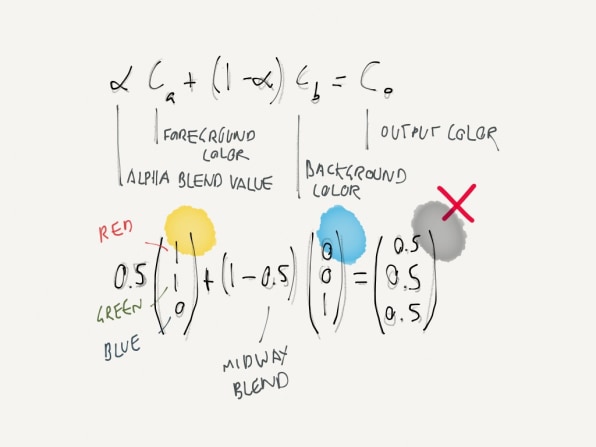 α Cₐ + (1-α) C_b = C₀
FOREGROUND
COLOR
OUTPUT COLOR
ALPHA BLEND VALUE
BACKGROUND
COLOR
RED
GREEN
BLUE
0.5 (1 1 0) + (1-0.5) (0 0 1) = (0.5 0.5 0.5)
MIDWAY
BLEND